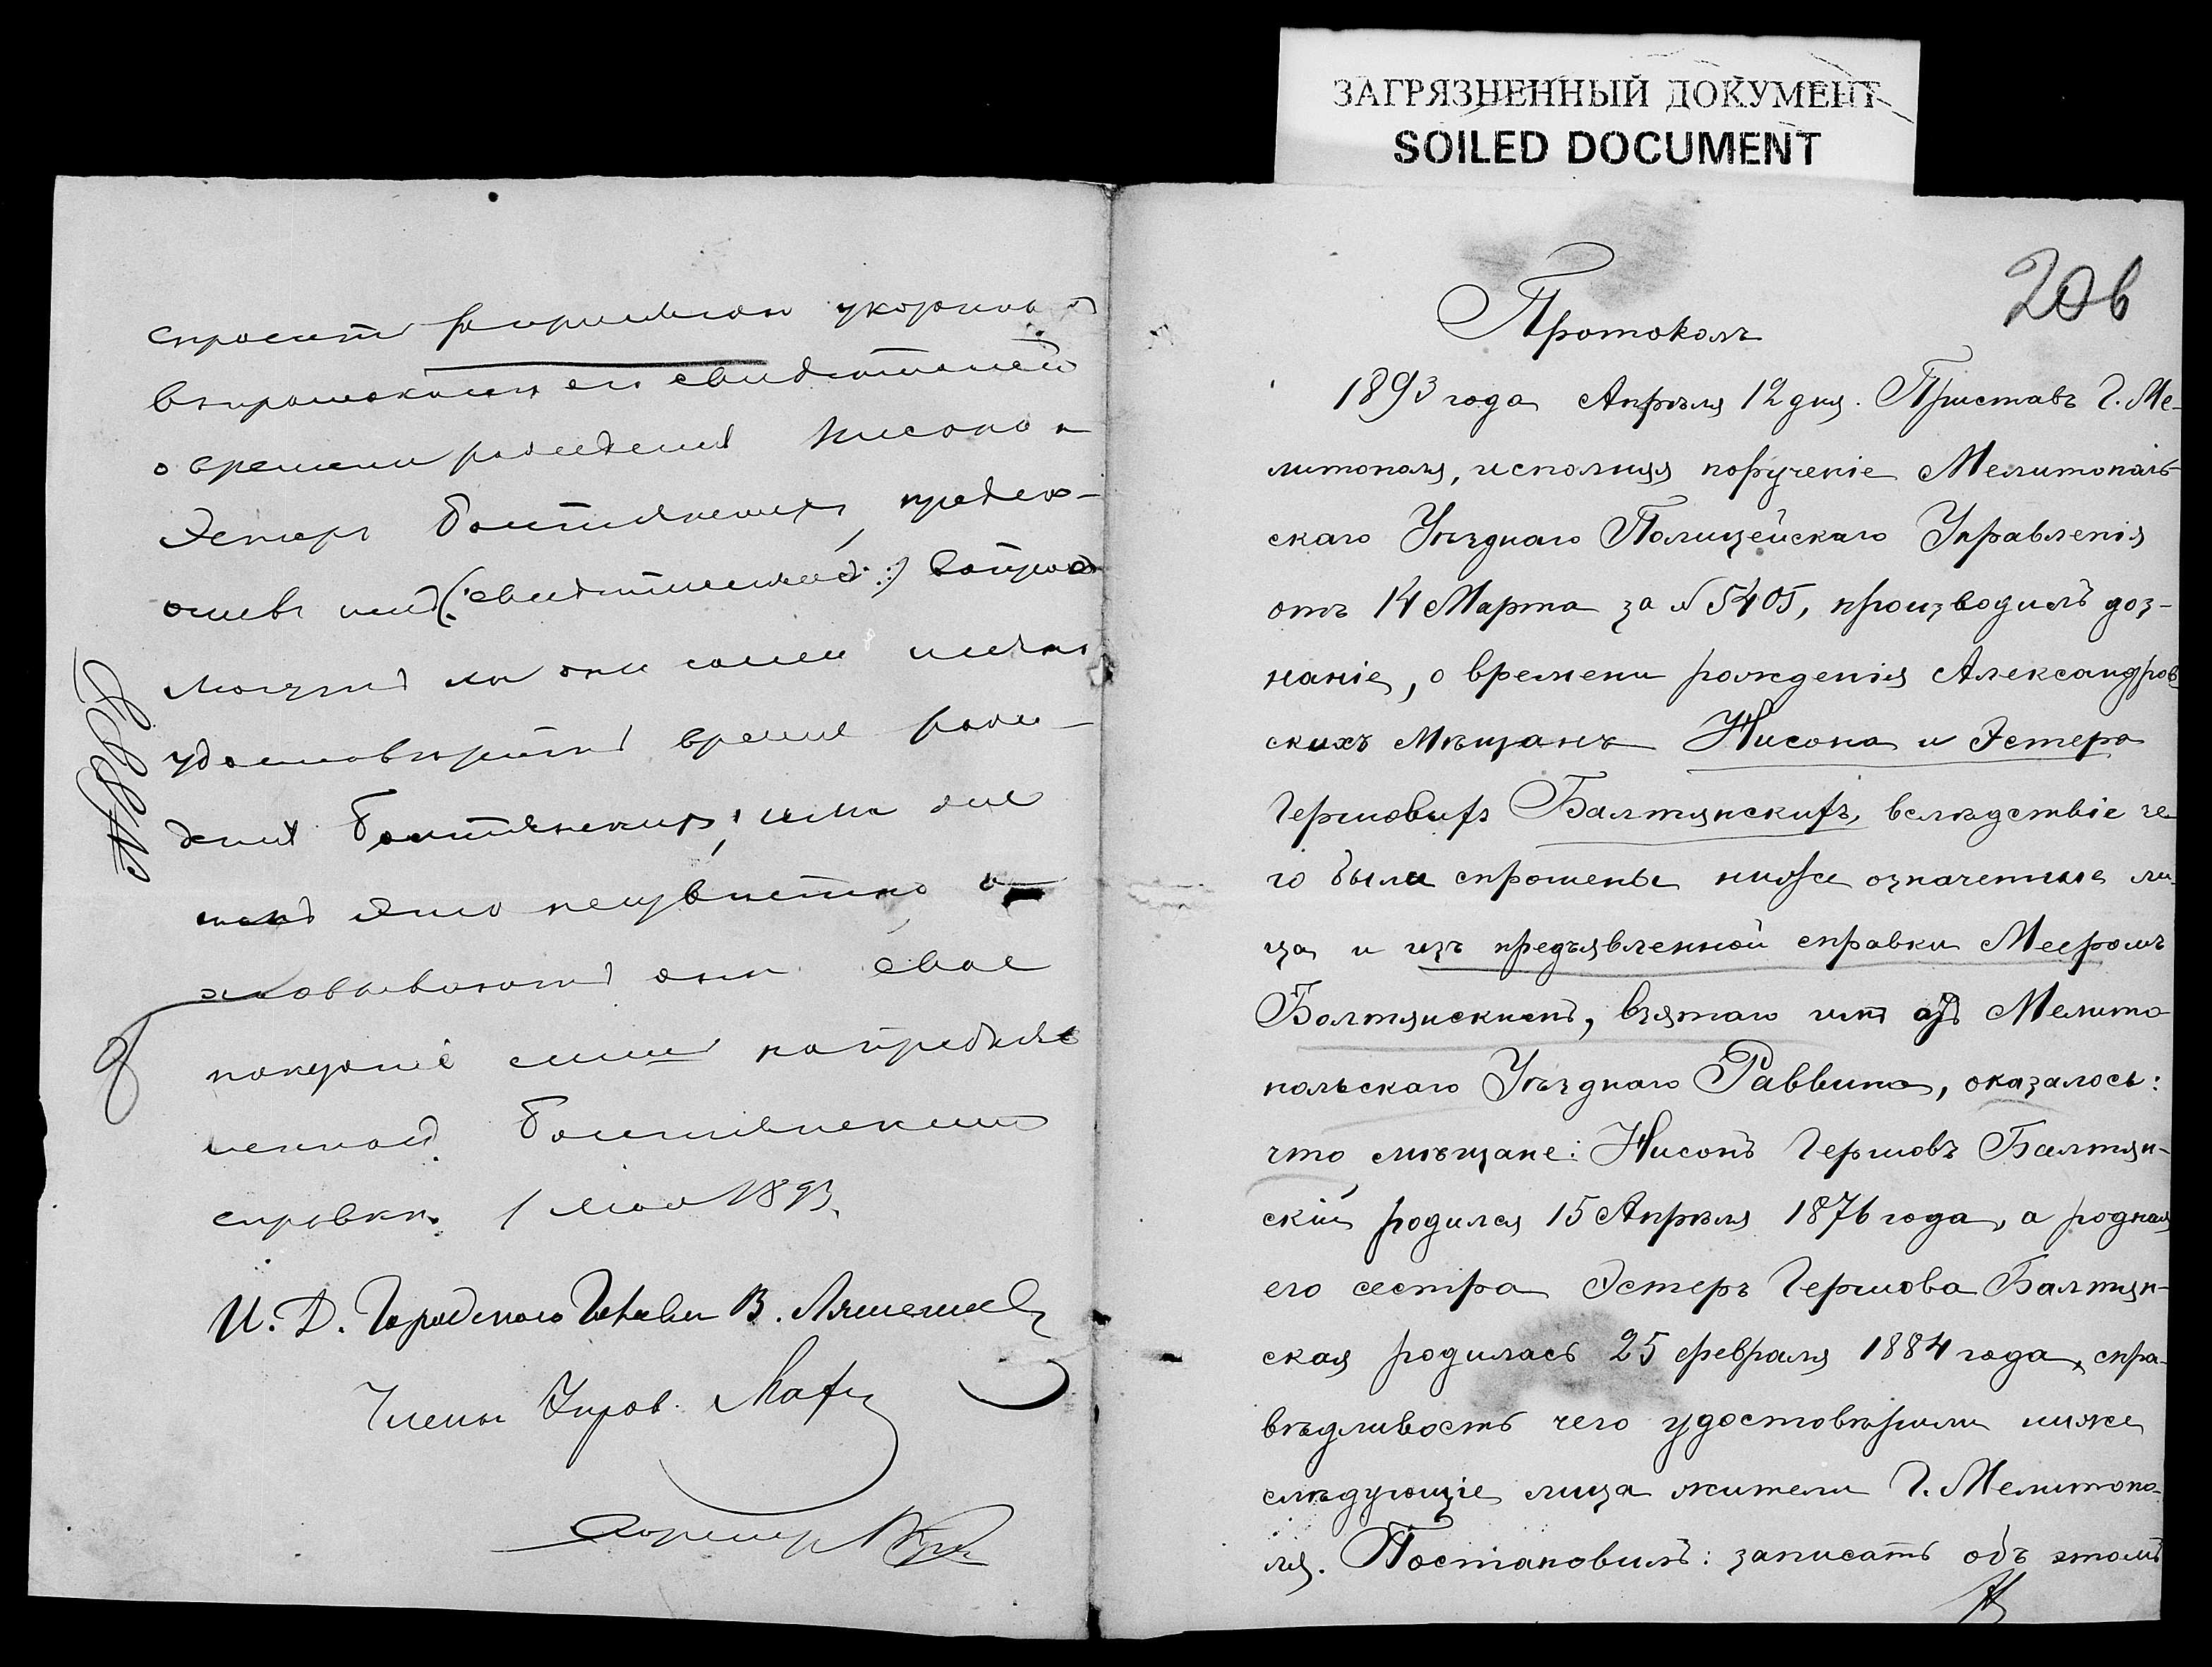 ЗАГРЯЗНЕННЫЙ ДОКУМЕНТ
SOILED DOCUMENT
спросить
свидетелей
о времени рожденія Нисона и
Эстеръ Балтянскихъ, предло-
живъ имъ (:свидетелямъ:) вопросъ
могутъ ли они сами лично
удостоверить время рож-
денія Балтянскихъ, или же
имъ это неизвестно и
основываютъ они свое
показаніе лишь на предъяв-
ленной Болтянскимъ
справке. 1 мая 1893.
И. Д. Городского Головы В.
Члены Управ.
206
Протоколъ
1893 года Апрѣля 12 дня. Приставъ Г. Ме-
литополя, исполняя порученіе Мелитополь-
скаго Уѣзднаго Полицейскаго Управленія
отъ 14 Марта за № 5405, производилъ доз-
наніе, о времени рожденія Александров-
скихъ Мѣщанъ Нисона и Эстера
Гершовыхъ Балтянскихъ, вслѣдствіе че-
го были спрошены ниже означенные ли-
ца и изъ предъявленной справки Мееромъ
Болтянскимъ, взятаго имъ отъ Мелито-
польскаго Уѣзднаго Раввина, оказалось:
что мѣщане: Нисонъ Гершовъ Балтян-
скій родился 15 Апрѣля 1876 года, а родная
его сестра Эстеръ Гершова Балтян-
ская родилась 25 февраля 1884 года, спра-
вѣдливость чего удостовѣрили ниже
слѣдующіе лица жители Г. Мелитопо-
ля. Постановилъ: записать объ этомъ